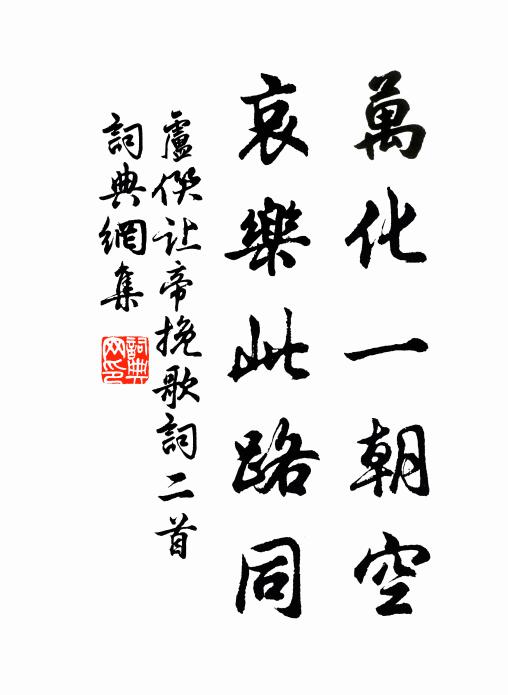 萬化一朝空
哀樂此路同
盧僎让帝挽歌詞二首
詞典網集
詞典网印